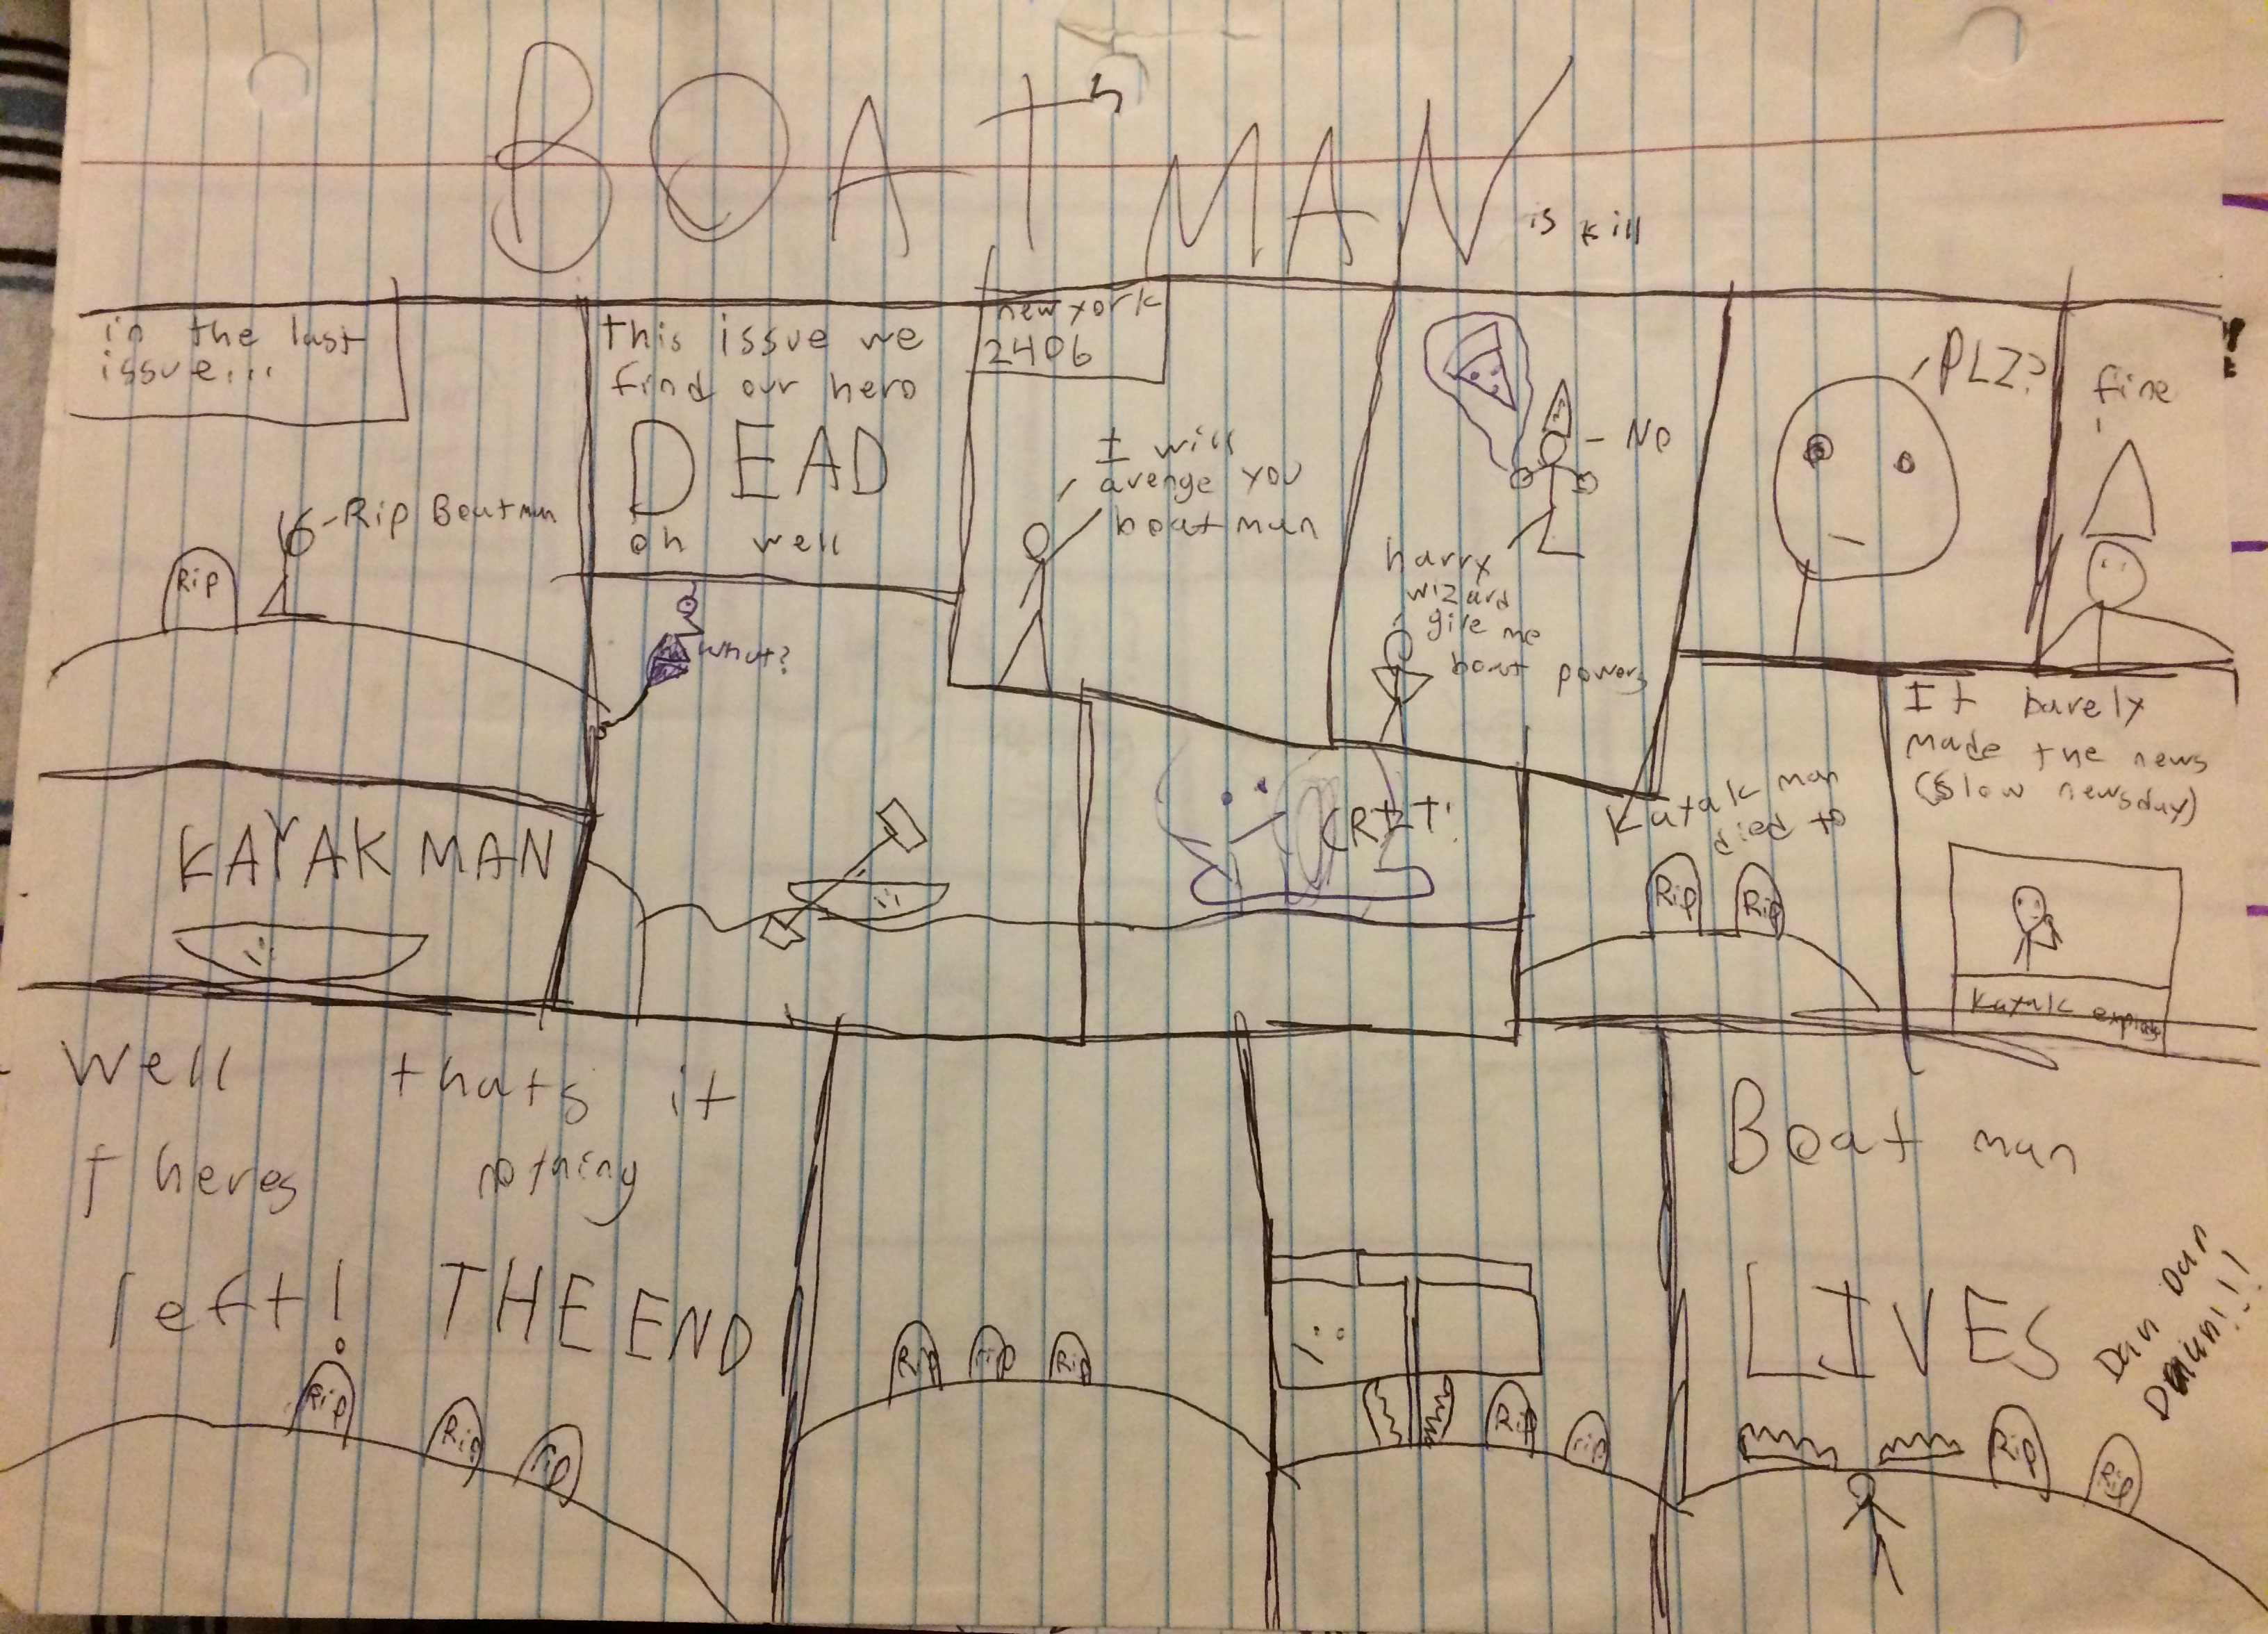 BOAT 5
MAN
is kill
in the last
issue...
Rip
-Rip Boatman
this issue we
find our hero
DEAD
oh well
new york
2406
I will
avenge you
boat man
- NO
harry
wizard
give me
boat powers
PLZ?
fine
KAYAK MAN
what?
CRIT!
Kayak man
died to
Rip
Rip
It barely
made the news
(slow newsday)
Kayak
Well thats it
theres nothing
left! THE END
Rip
Rip
rip
Rip
rip
Rip
Rip
rip
Boat man
LIVES
Dun Dun
Duun!!!
Rip
Rip